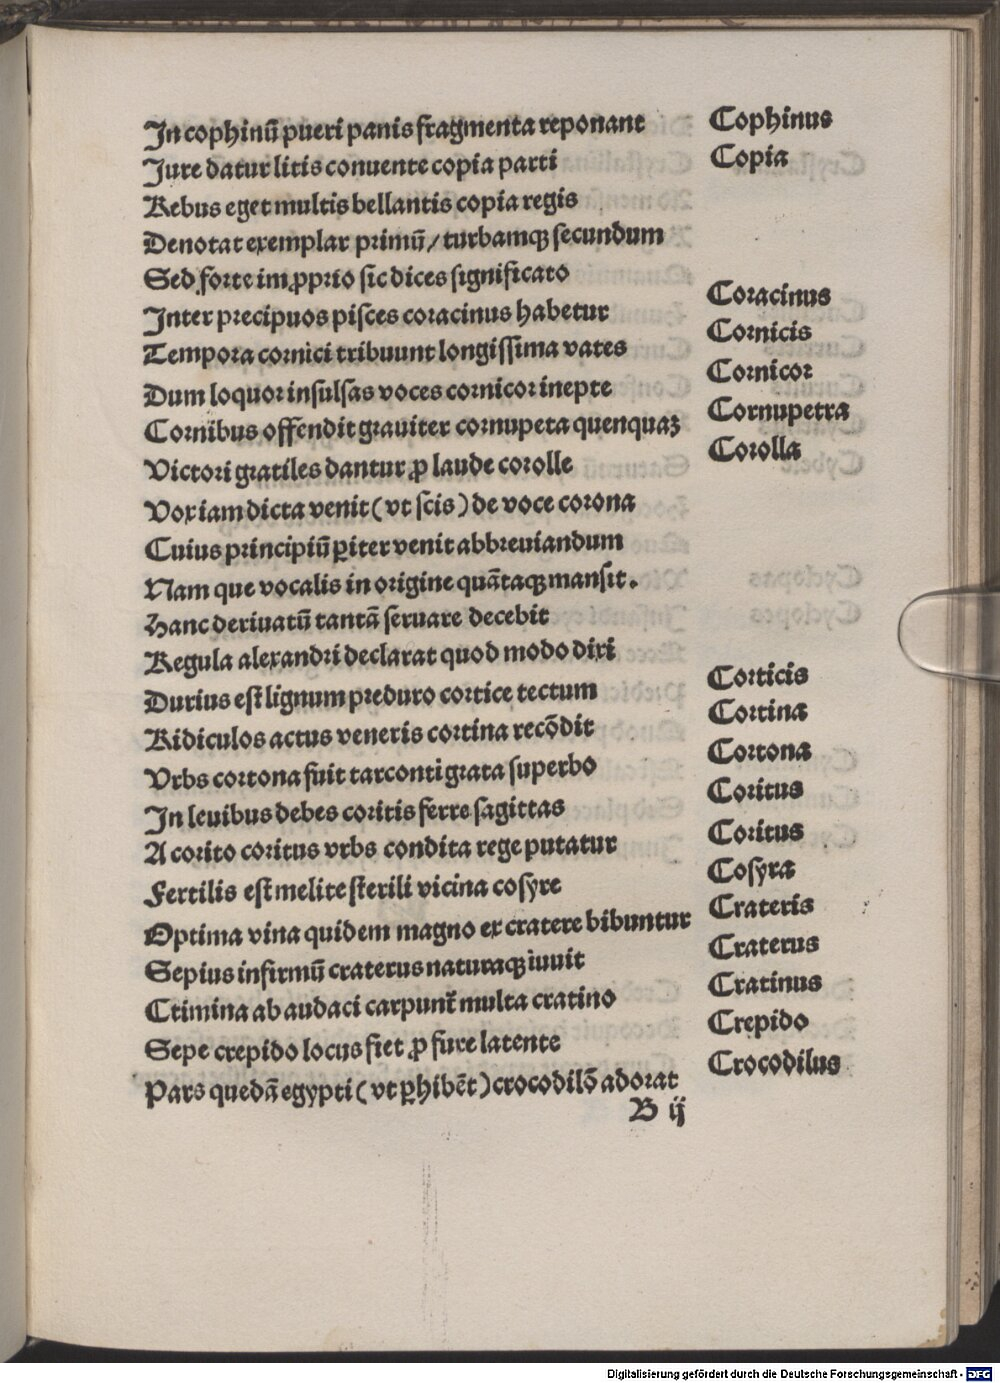 In cophinū pueri panis fragmenta reponant Cophinus
Jure datur litis conuente copia parti Copia
Rebus eget multis bellantis copia regis
Denotat exemplar primū/ turbamqꝫ secundum
Sed forte im ꝓprio sic dices significato
Inter precipuos pisces coracinus habetur Coracinus
Tempora cornici tribuunt longissima vates Cornicis
Dum loquor insulsas voces cornicor inepte Cornicor
Cornibus offendit grauiter cornupeta quenquaꝫ Cornupetra
Victori gratiles dantur ꝓ laude corolle Corolla
Vox iam dicta venit (vt scis) de voce corona
Cuius principiū ꝑiter venit abbreuiandum
Nam que vocalis in origine quātaqꝫ mansit.
Hanc deriuatū tantā seruare decebit
Regula alexandri declarat quod modo dixi
Durius est lignum preduro cortice tectum Corticis
Ridiculos actus veneris cortina recōdit Cortina
Vrbs cortona fuit tarconti grata superbo Cortona
In leuibus debes coritis ferre sagittas Coritus
A corito coritus vrbs condita rege putatur Coritus
Fertilis est melite sterili vicina cosyre Cosyra
Optima vina quidem magno ex cratere bibuntur Crateris
Sepius infirmū craterus naturaqꝫ iuuit Craterus
Ctimina ab audaci carpunt᷑ multa cratino Cratinus
Sepe crepido locus fiet ꝓ fure latente Crepido
Pars quedā egypti (vt ꝑhibēt) crocodilō adorat Crocodilus
B ij
Digitalisierung gefördert durch die Deutsche Forschungsgemeinschaft - DFG